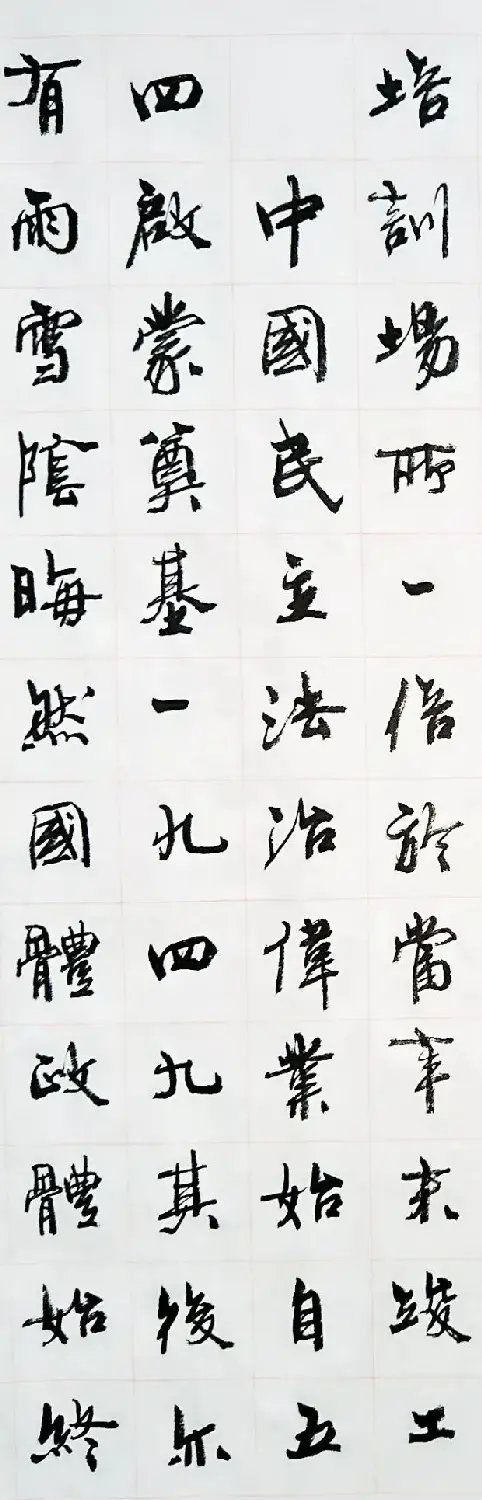 培訓場所一倍於當年末竣工
中國民主法治偉業始自五
四啟蒙奠基一九四九其後亦
有雨雪陰晦然國體政體始終